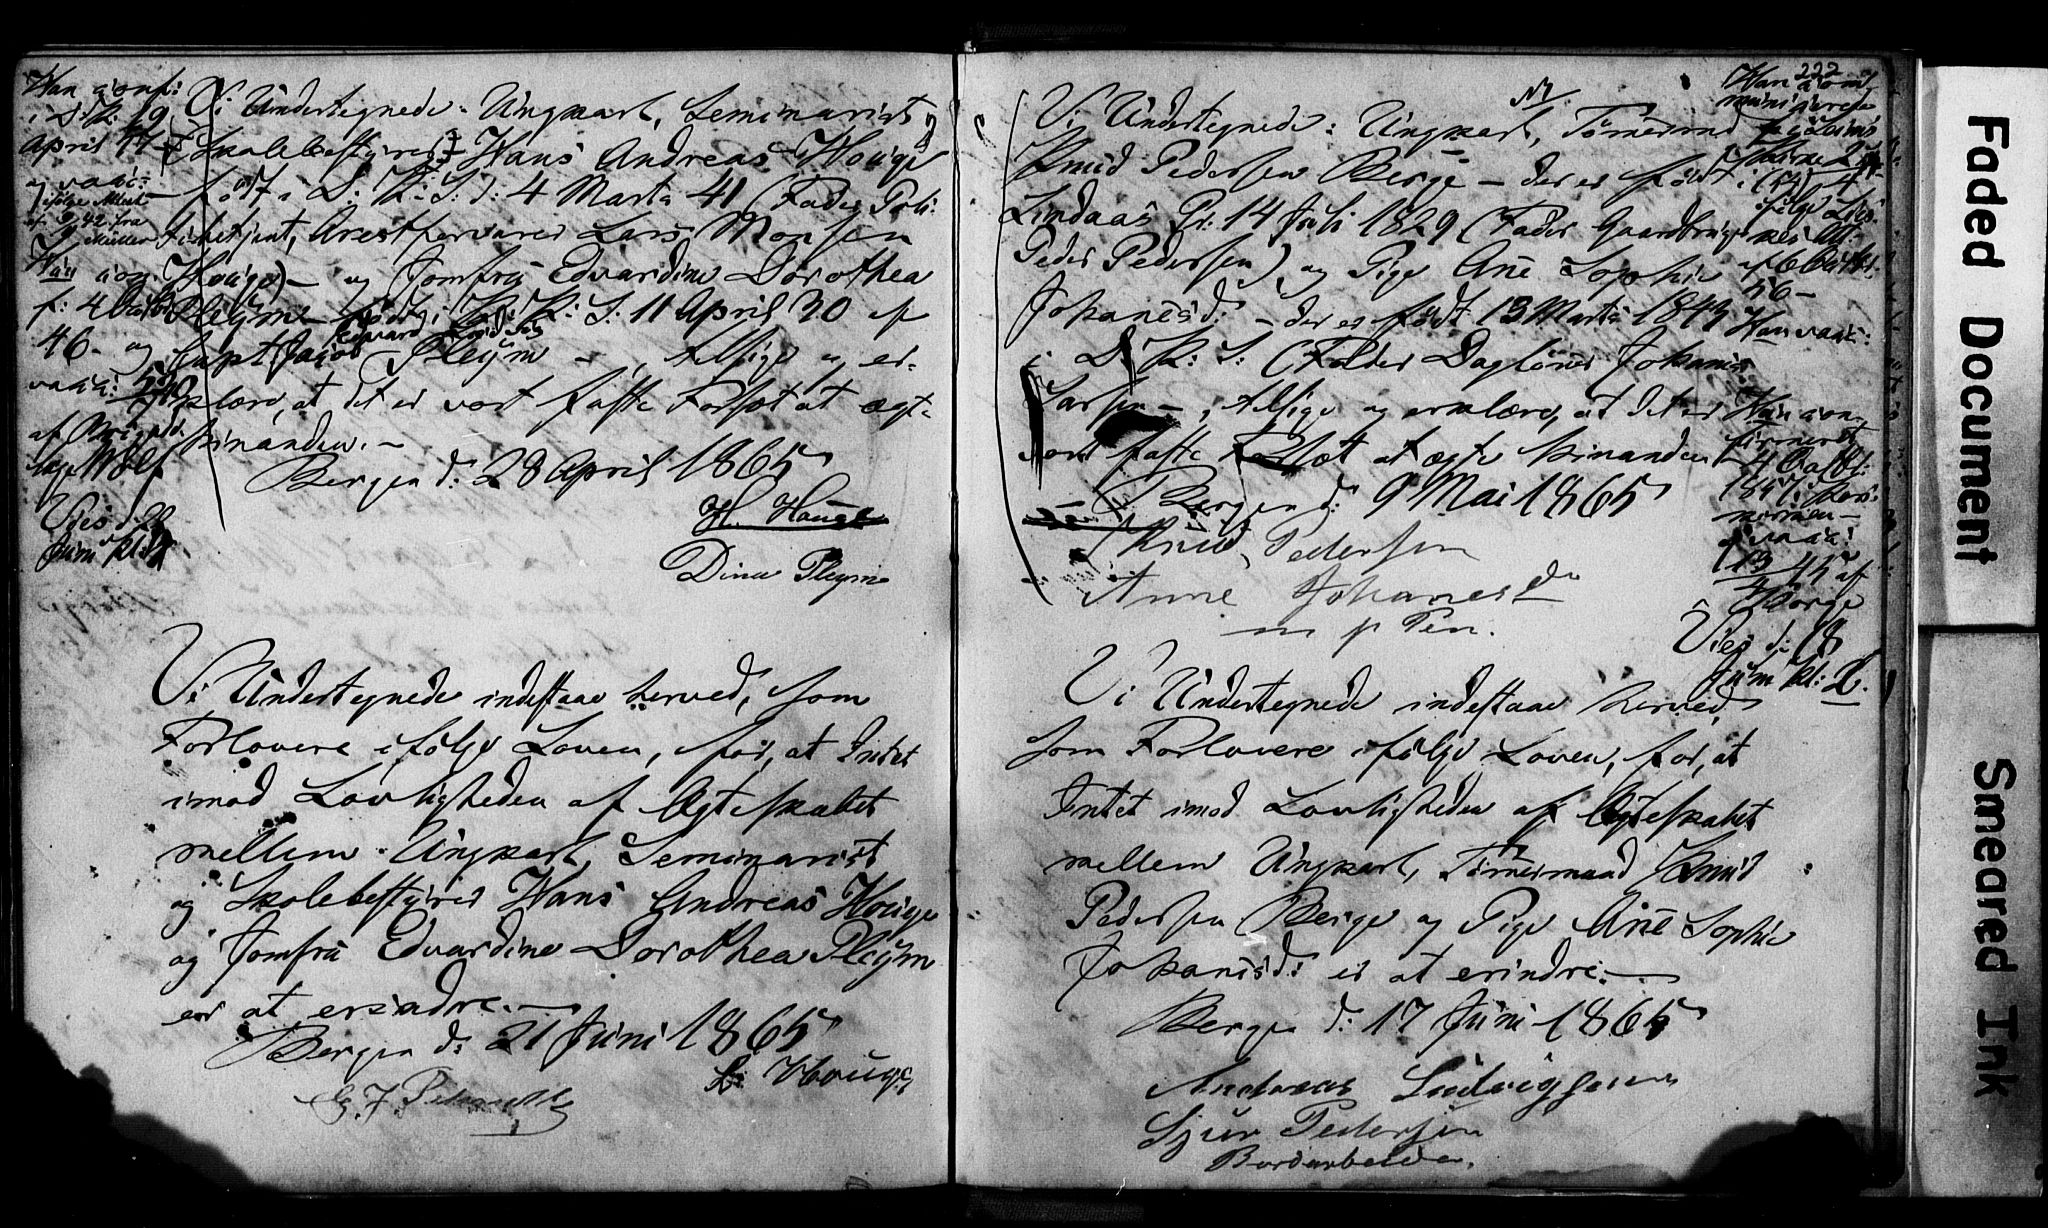 Han conf:
i D: K: 19
April 44
og vacc:
ifølge Attest
af 9/9 42 fra
Müller
Hun con
f: 4 Octbr
46 - og
vacc:
af Brigadelæge Wolf
Vies d. 22
Juni kl:
Vi Undertegnede: Ungkarl, Seminarist
og Skolebestyrer Hans Andreas Houge
født i D: K: S: d: 4 Marts 41 (Fader Poli-
tibetjent, Arestforvarer Lars Monsen
Houge) - og Jomfru Edvardine Dorothea
Pleym - født i K: K: S: 11 April 30 af
Capt Jacob Edvard Pleym - , tilsige og er-
klære, at det er vort faste Forsæt at ægte
hinanden. -
Bergen d: 28 April 1865
H. Houge
Dina Pleym
Vi Undertegnede indestaae herved, som
Forlovere ifølge Loven, for, at Intet
imod Lovligheden af Ægteskabet
mellem Ungkarl, Seminarist
og Skolebestyrer Hans Andreas Houge
og Jomfru Edvardine Dorothea Pleym
er at erindre. -
Bergen d: 21 Juni 1865
L: Houge
222
Vi Undertegnede: Ungkarl, Tømmermand
Knud Pedersen Berge - der er født i
Lindaas Pr: 14 Juli 1829 (Fader Gaardbruger
Peder Pedersen), og Pige Ane Sophie
Johanesd: - der er født 13 Marts 1843
i D: K: S: (Fader Daglønner Johanes
Larsen - , tilsige og erklære, at det er
vort faste Forsæt at ægte hinanden
- Bergen d: 9 Mai 1865
Knud Pedersen
Anne Johanesdr
m p Pen.
Han vacc:
Hun con-
firmeret
4 Octbr:
1857: Kors-
kirken -
vacc:
13/4 45 af
Vies d: 18
Juni kl: 2.
Vi Undertegnede indestaae herved,
som Forlovere ifølge Loven, for, at
Intet imod Lovligheden af Ægteskabet
mellem Ungkarl, Tømmermand Knud
Pedersen Berge og Pige Ane Sophie
Johanesd: er at erindre. -
Bergen d: 17 Juni 1865
Andreas Ludvigsen
Sjur Pedersen
Bordarbeider.
Faded Document
Smeared Ink